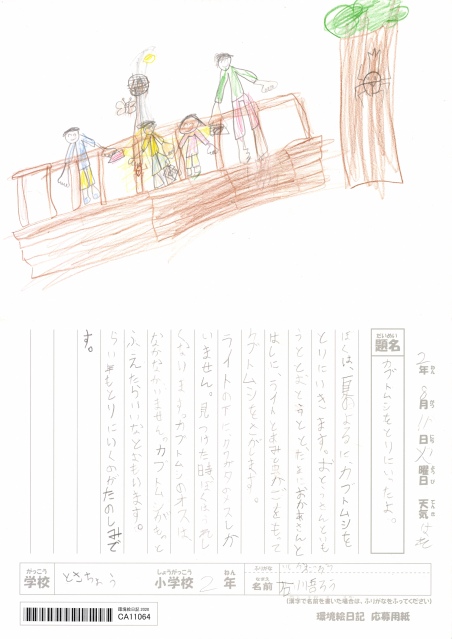 2年8月11日火曜日 天気 はれ
だいめい
題名 カブトムシをとりにいったよ。
ぼくは、夏のよるにカブトムシを
とりにいきます。おとうさんといも
うとと
たまにおかあさんと
はしに、ライトとあみとかごをもって
カブトムシをさがします。
ライトの下にクワガタのメスしか
いません。見つけた時ぼくはうれし
くなります。カブトムシのオスは、
なかなかいません。カブトムシがもっと
ふえたらいいなとおもいます。
らい年もとりにいくのがたのしみで
す。
がっこう
学校 ときちょう
しょうがっこう
小学校 2年
ふりがな
なまえ
名前 石川
(漢字で名前を書いた場合は、ふりがなをふってください)
環境絵日記 2020
CA11064
環境絵日記 応募用紙